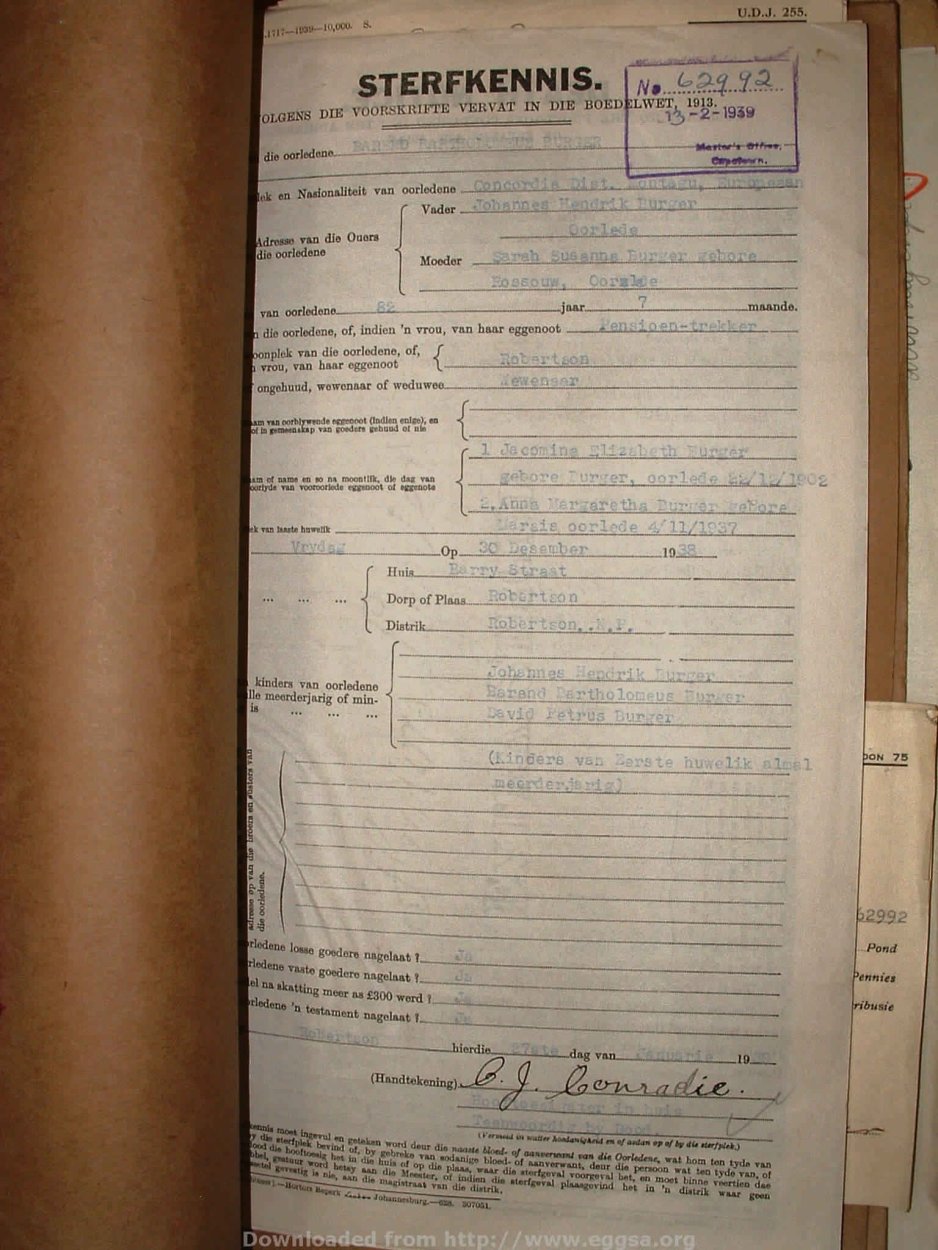 U.D.J. 255.
.1717—1939—10,000. S.
STERFKENNIS.
No. 62992
OLGENS DIE VOORSKRIFTE VERVAT IN DIE BOEDELWET, 1913.
13-2-1939
Master's Office,
Capetown.
die oorledene BAREND BARTHOLOMEUS BURGER
lek en Nasionaliteit van oorledene Concordia Dist. Montagu, European
Vader Johannes Hendrik Burger
Oorlede
Adresse van die Ouers
die oorledene
Moeder Sarah Susanna Burger gebore
Rossouw, Oorlede
van oorledene 82 jaar 7 maande.
n die oorledene, of, indien 'n vrou, van haar eggenoot Pensioen-trekker
oonplek van die oorledene, of,
vrou, van haar eggenoot Robertson
ongehuud, wewenaar of weduwee Wewenaar
am van oorblywende eggenoot (indien enige), en
of in gemeenskap van goedere gehuud of nie
1 Jacomina Elizabeth Burger
am of name en so na moontlik, die dag van
oorlyde van vooroorlede eggenoot of eggenote
gebore Burger, oorlede 22/12/1902
2. Anna Margaretha Burger gebore
ek van laaste huwelik Marais oorlede 4/11/1937
Vrydag Op 30 Desember 1938
Huis Barry Straat
... ... ... Dorp of Plaas Robertson
Distrik Robertson, .K.P.
kinders van oorledene
lle meerderjarig of min-
is ... ... ...
Johannes Hendrik Burger
Barend Bartholomeus Burger
David Petrus Burger
(Kinders van Eerste huwelik almal
meerderjarig)
adresse op van die broers en susters van
die oorledene.
rledene losse goedere nagelaat ? Ja
rledene vaste goedere nagelaat ? Ja
el na skatting meer as £300 werd ? Ja
rledene 'n testament nagelaat ? Ja
Robertson hierdie 27ste dag van Januarie 19
(Handtekening) C. J. Conradie.
in huis
Teenwoordig by Dood.
(Vermeld in watter hoedanigheid en of aedan op of by die sterfplek.)
ennis moet ingevul en geteken word deur die naaste bloed- of aanverwant van die Oorledene, wat hom ten tyde van
y die sterfplek bevind of, by gebreke van sodanige bloed- of aanverwant, deur die persoon wat ten tyde van, of
ood die hooftoesig het in die huis of op die plaas, waar die sterfgeval voorgeval het, en moet binne veertien dae
gestuur word hetsy aan die Meester, of indien die sterfgeval plaasgevind het in 'n distrik waar geen
gevestig is nie, aan die magistraat van die distrik.
Hortors Beperk Johannesburg.—638. 307051.
DON 75
62992
Pond
Pennies
ribusie
Downloaded from http://www.eggsa.org